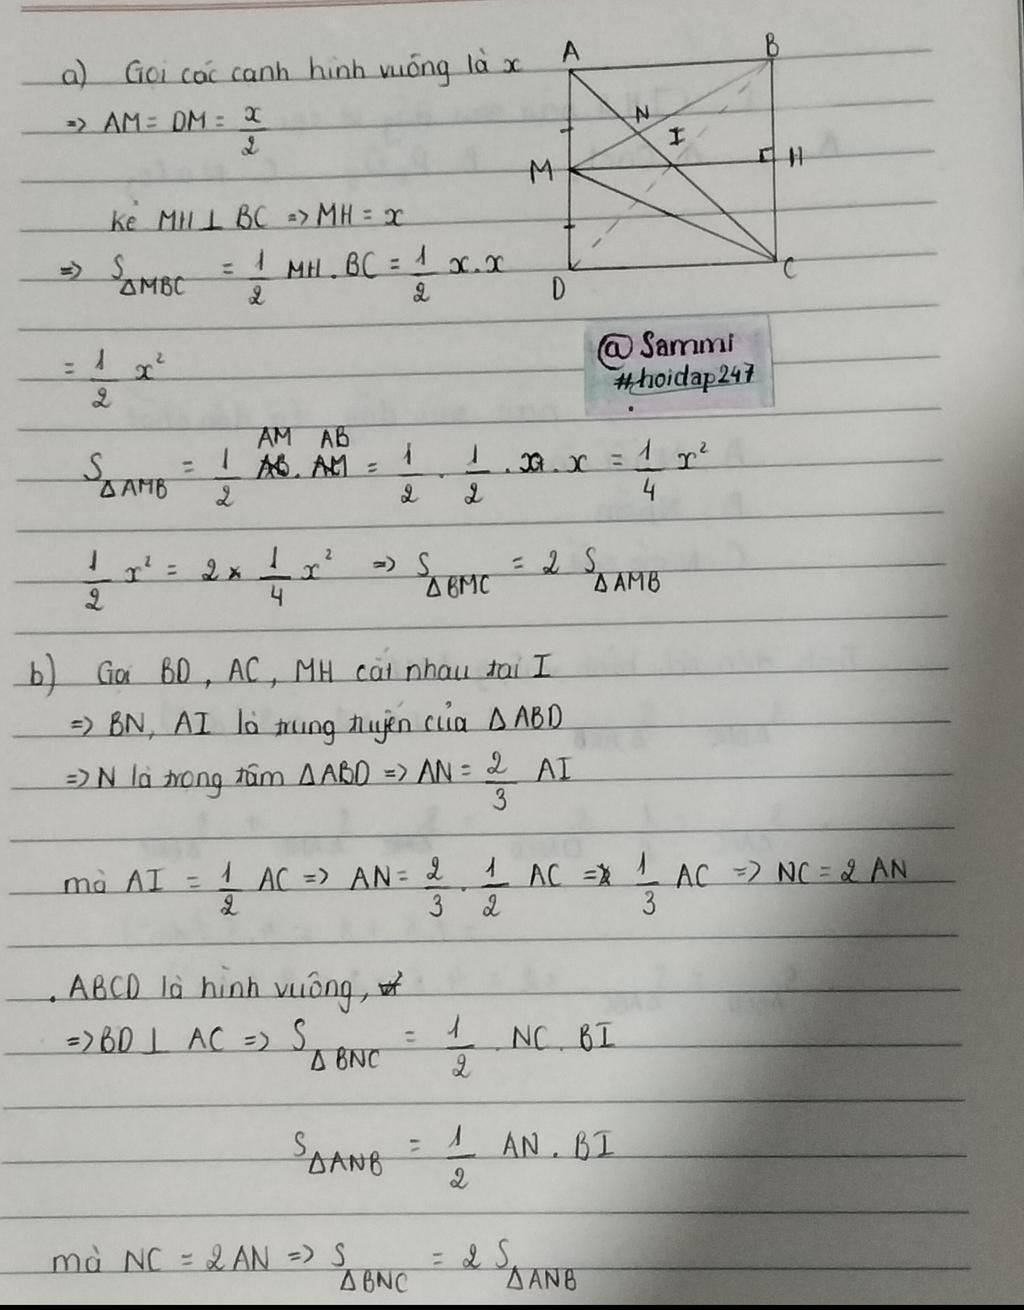 a) Gọi các cạnh hình vuông là x
=> AM = DM = x/2
kẻ MH ⊥ BC => MH = x
=> S ΔMBC = 1/2 MH . BC = 1/2 x . x
= 1/2 x²
AM AB
S ΔAMB = 1/2 AB. AM = 1/2 . 1/2 . x . x = 1/4 x²
1/2 x² = 2 × 1/4 x² => S ΔBMC = 2 S ΔAMB
A B
N I
M H
D C
@Sammi
#hoidap247
b) Gọi BD, AC, MH cắt nhau tại I
=> BN, AI là trung tuyến của ΔABD
=> N là trọng tâm ΔABD => AN = 2/3 AI
mà AI = 1/2 AC => AN = 2/3 . 1/2 AC = 1/3 AC => NC = 2 AN
. ABCD là hình vuông,
=> BD ⊥ AC => S ΔBNC = 1/2 NC . BI
S ΔANB = 1/2 AN . BI
mà NC = 2 AN => S ΔBNC = 2 S ΔANB